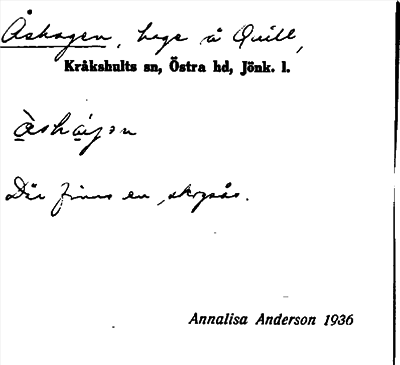 Åshagen, hage å Quill,
Kråkshults sn, Östra hd, Jönk. l.
Där finns en
Annalisa Anderson 1936